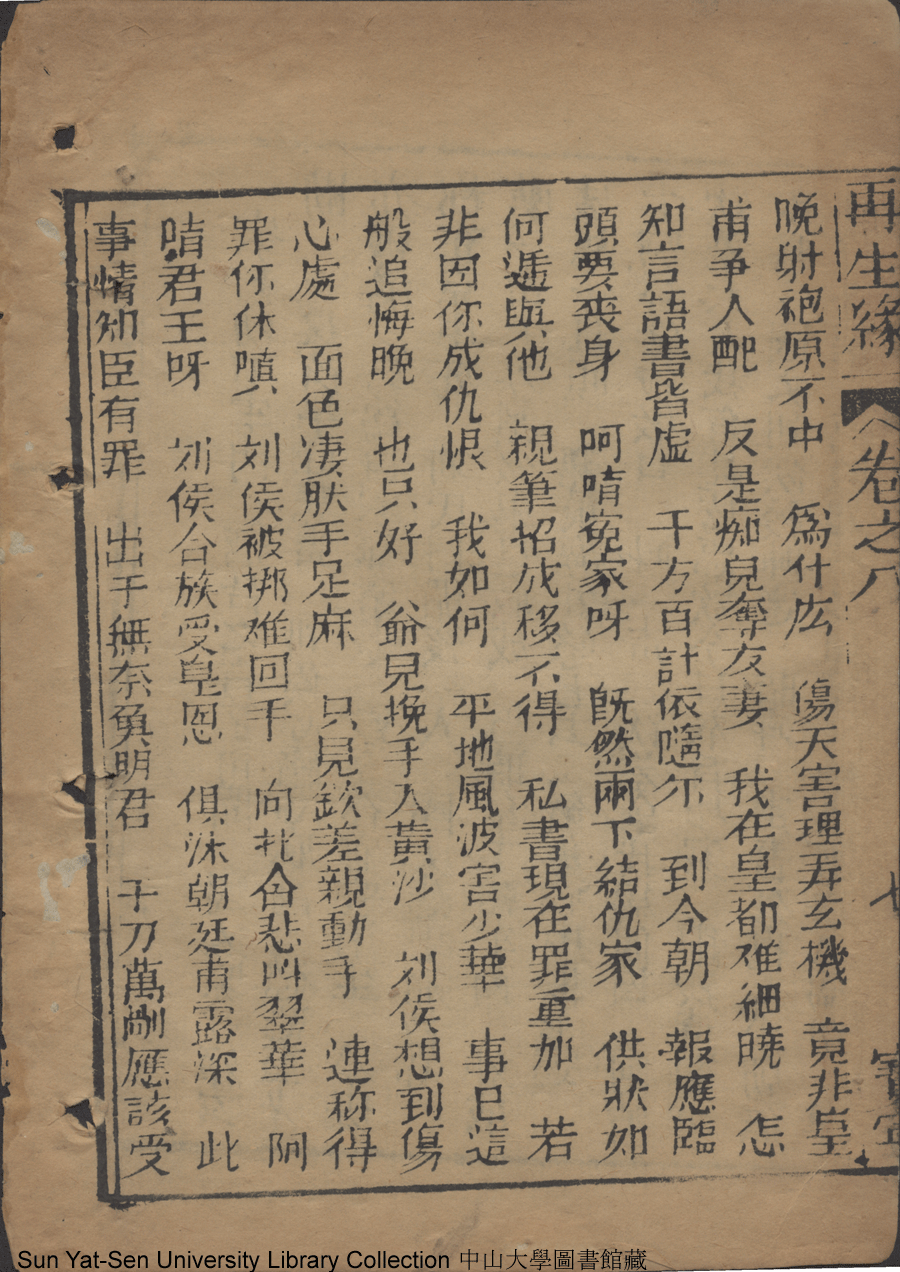 再生緣 卷之八 七
晚射袍原不中 爲什庅 傷天害理弄玄機 竟非皇
甫爭人配 反是痴兒奪友妻 我在皇都难細曉 怎
知言語書皆虛 千方百計依隨尔 到今朝 報應臨
頭要丧身 呵唷寃家呀 旣然兩下結仇家 供狀如
何遞與他 親筆招成移不得 私書現在罪重加 若
非因你成仇恨 我如何 平地風波害少華 事已這
般追悔晚 也只好 爺兒挽手入黃沙 刘侯想到傷
心處 面色凄肰手足麻 只見欽差親動手 連称得
罪你休嗔 刘侯被挷难回手 向北含悲叫翠華 阿
唷君王呀 刘侯合族受皇恩 俱沐朝廷甫露深 此
事情知臣有罪 出于無奈負明君 千刀萬剮應該受
Sun Yat-Sen University Library Collection 中山大學圖書館藏